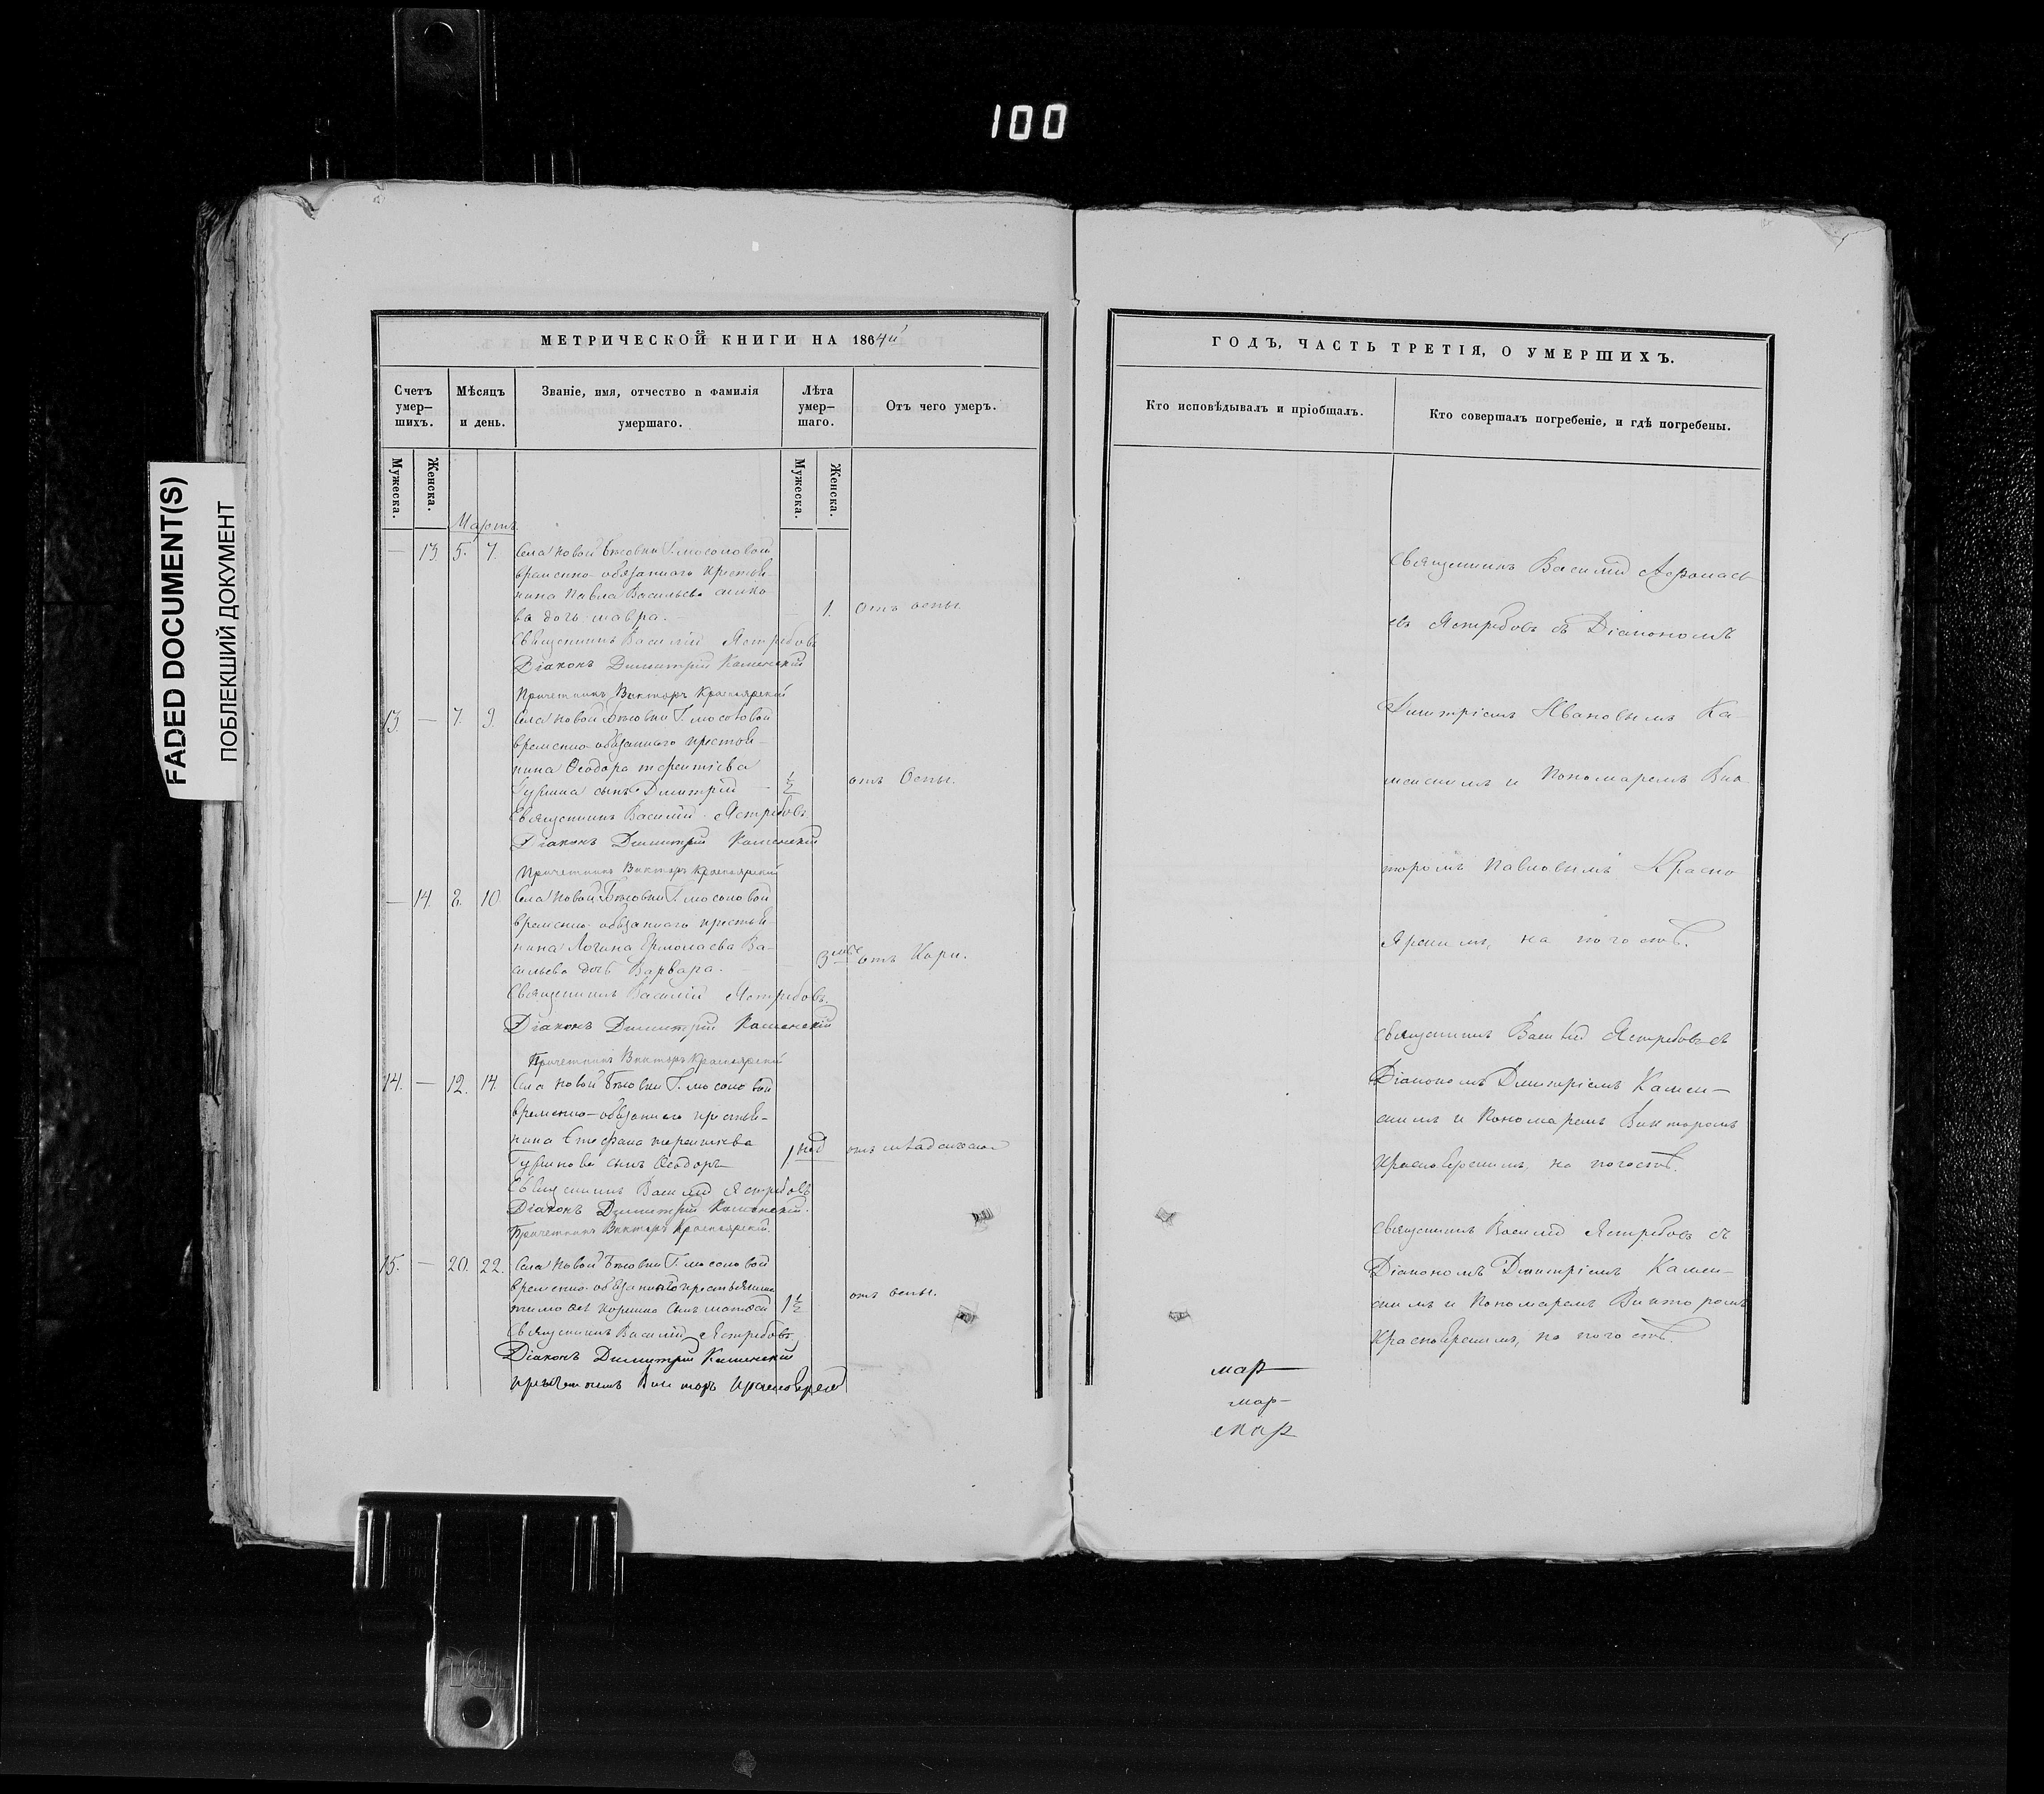 100
FADED DOCUMENT(S)
ПОБЛЕКШИЙ ДОКУМЕНТ
МЕТРИЧЕСКОЙ КНИГИ НА 1864й
Счетъ умер-шихъ.
Мѣсяцъ и день.
Званіе, имя, отчество и фамилія умершаго.
Лѣта умер-шаго.
Отъ чего умеръ.
Мужеска.
Женска.
Мужеска.
Женска.
Мартъ.
— 13. 5. 7. Села Новой Г. Мосоловой
временно-обязаннаго крестья-
нина Павла Васильева
ва дочь Мавра. 1. отъ оспы.
Священникъ Василій Ястребовъ
Діаконъ Димитрій Каменскій
Причетникъ Викторъ Красноярскій
13. — 7. 9. Села Новой Г. Мосоловой
временно-обязаннаго крестья-
нина Ѳеодора Терентіева
сынъ Димитрій ½ отъ Оспы.
Священникъ Василій Ястребовъ.
Діаконъ Димитрій Каменскій
Причетникъ Викторъ Красноярскій
— 14. 8. 10. Села Новой Г. Мосоловой
временно-обязаннаго крестья-
нина Логина Ермолаева Ва-
сильева дочь Варвара. 3 мѣс. отъ Кори.
Священникъ Василій Ястребовъ.
Діаконъ Димитрій Каменскій
Причетникъ Викторъ Красноярскій
14. — 12. 14. Села Новой Г. Мосоловой
временно-обязаннаго крестья-
нина Стефана Терентіева
сынъ Ѳеодоръ 1 нед отъ
Священникъ Василій Ястребовъ
Діаконъ Димитрій Каменскій.
Причетникъ Викторъ Красноярскій.
15. — 20. 22. Села Новой Г. Мосоловой
временно-обязаннаго крестьянина
сынъ Матѳей 1½ отъ оспы.
Священникъ Василій Ястребовъ,
Діаконъ Димитрій Каменскій
Причетникъ Викторъ Красноярскій
ГОДЪ, ЧАСТЬ ТРЕТІЯ, О УМЕРШИХЪ.
Кто исповѣдывалъ и пріобщалъ.
Кто совершалъ погребеніе, и гдѣ погребены.
Священникъ Василій Афонась
евъ Ястребовъ съ Діакономъ
Димитріемъ Ивановымъ Ка-
менскимъ и Пономаремъ Вик-
торомъ Павловымъ Красно
ярскимъ, на погостѣ.
Священникъ Василій Ястребовъ съ
Діакономъ Димитріемъ Камен-
скимъ и Пономаремъ Викторомъ
Красноярскимъ, на погостѣ.
Священникъ Василій Ястребовъ съ
Діакономъ Димитріемъ Камен-
скимъ и Пономаремъ Викторомъ
Красноярскимъ, на погостѣ.
мар
мар-
мар